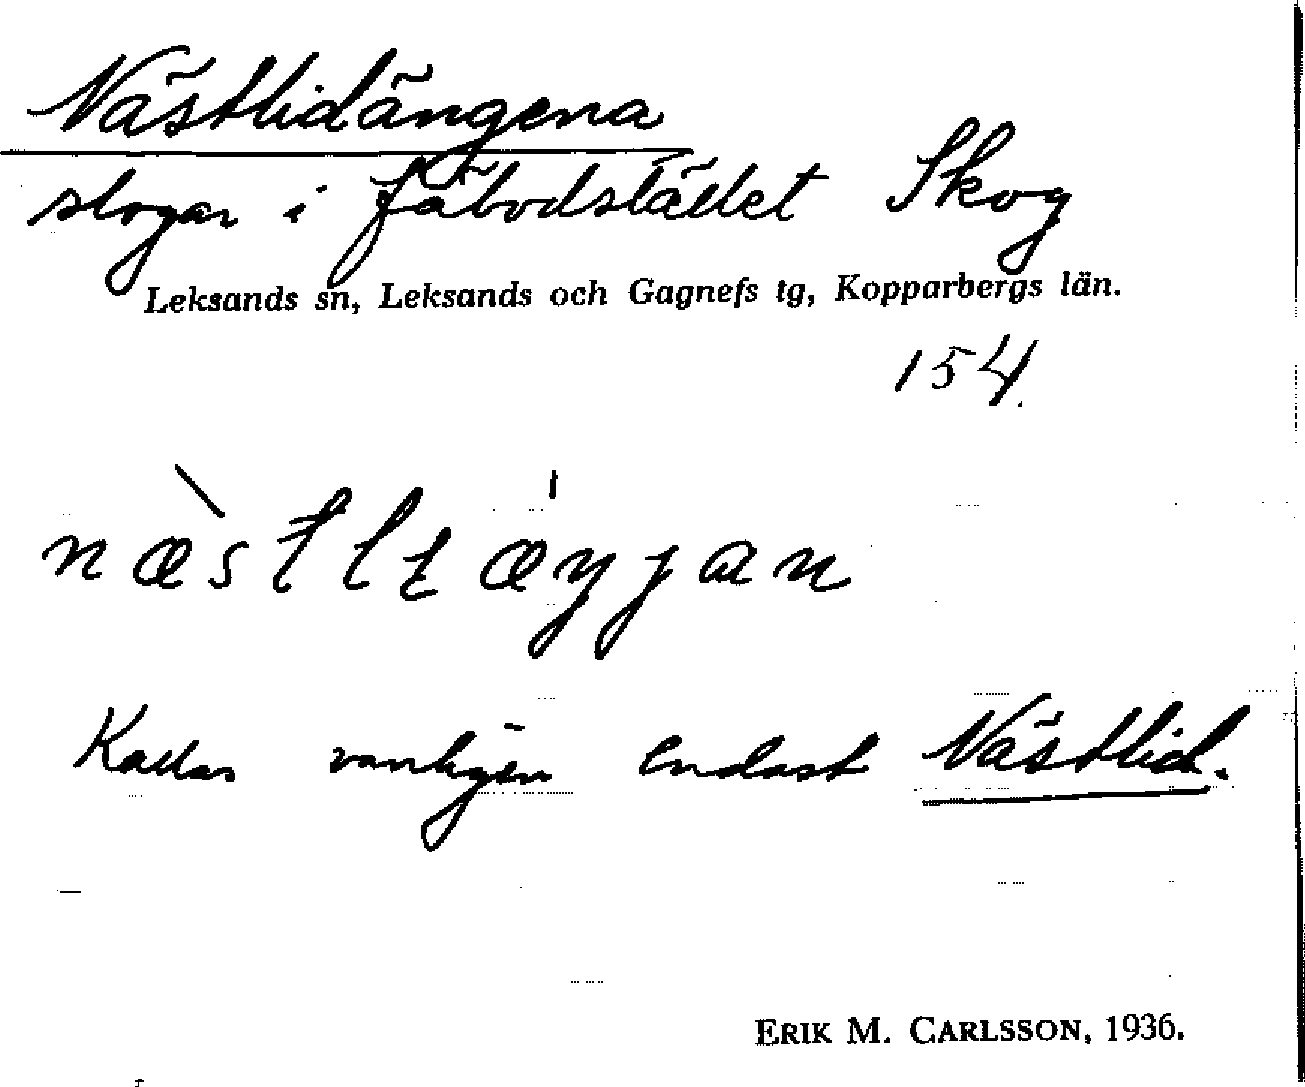 Västlidängena
slogar i fäbodstället Skog
Leksands sn, Leksands och Gagnefs tg, Kopparbergs län.
154.
Kallas vanligen endast Västlid.
ERIK M. CARLSSON, 1936.